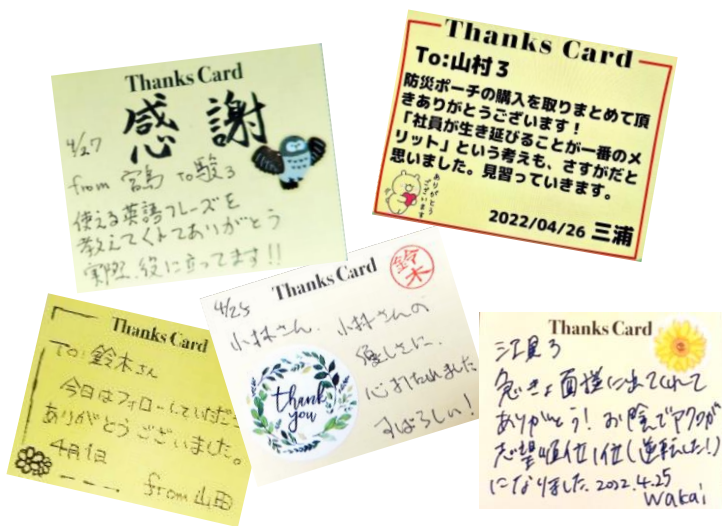 Thanks Card
感謝
4/27
from 宮島 to駿3
使える英語フレーズを
教えてくれてありがとう
実際、役に立ってます!!
Thanks Card
To:山村3
防災ポーチの購入を取りまとめて頂
きありがとうございます！
「社員が生き延びることが一番のメ
リット」という考えも、さすがだと
思いました。見習っていきます。
ありがとう
ございます
2022/04/26 三浦
Thanks Card
To:鈴木さん
今日はフォローしていただき
ありがとうございました。
4月1日
from 山田
鈴木
Thanks Card
4/25
小林さん、小林さんの
優しさに、
心打たれました
すばらしい!
thank
you
Thanks Card
江見3
急きょ面接に出てくれて
ありがとう! お陰でアクアが
志望順位1位(逆転した!)
になりました。2022.4.25
Wakai